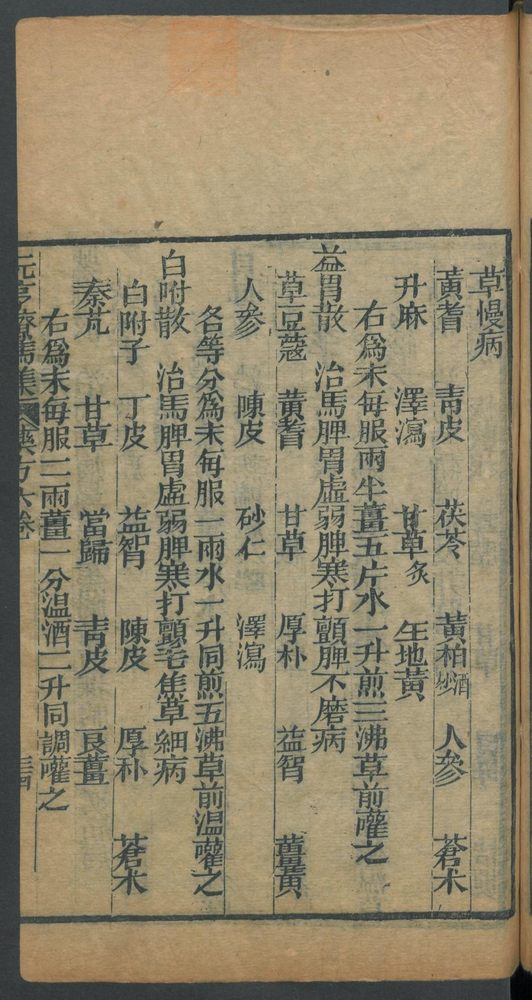 草慢病
黃耆 青皮 茯苓 黃柏酒炒 人參 蒼术
升麻 澤瀉 甘草炙 生地黃
右爲末每服兩半薑五片水一升煎三沸草前灌之
益胃散 治馬脾胃虛弱脾寒打顫脾不磨病
草豆蔻 黃耆 甘草 厚朴 益智 薑黃
人參 陳皮 砂仁 澤瀉
各等分爲末每服一兩水一升同煎五沸草前温灌之
白附散 治馬脾胃虛弱脾寒打顫毛焦草細病
白附子 丁皮 益智 陳皮 厚朴 蒼术
秦艽 甘草 當歸 青皮 良薑
右爲末每服二兩薑一分温酒二升同調灌之
元亨療馬集 藥方六卷